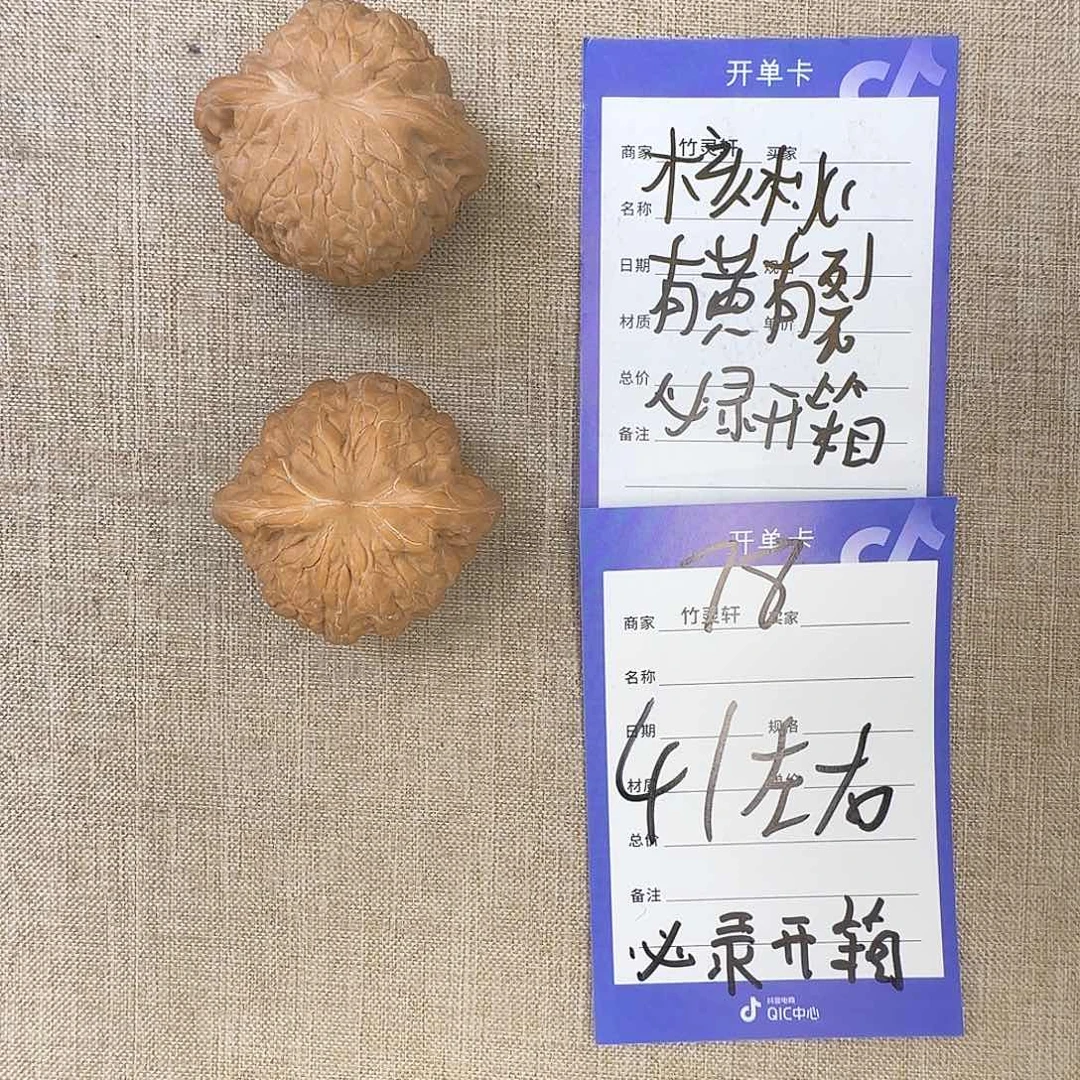 开单卡
商家 竹灵轩 买家
核桃
名称
日期 规格
有黄有裂
材质 单价
总价
必绿开箱
备注
开单卡
78
商家 竹灵轩 买家
名称
日期 规格
41左右
材质 单价
总价
备注
必录开箱
抖音电商
QIC中心